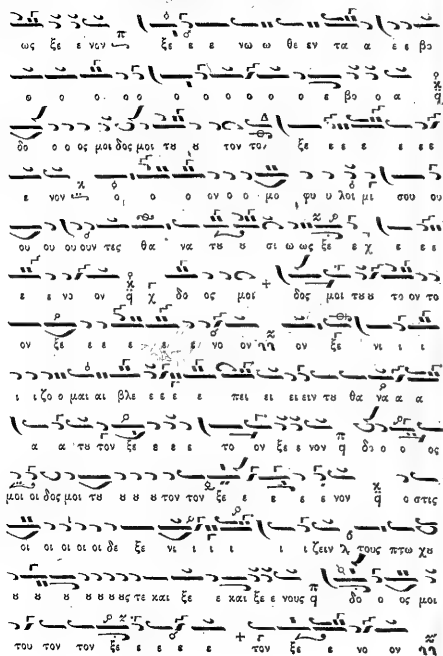 ως ξε ε νον ξε ε ε νω ω θε εν τα α ε ε βο
ο ο ο ο ο ο ο ο ο ο ο ε βο ο α
δο ο ο ος μοι δος μοι τȣ ȣ τον τον ξε ε ε ε ε ε ε
ε νον ο ο ο ον ο ο μο φυ υ λοι μι σου ου
ου ου ου ουν τες θα να τȣ ȣ σι ω ως ξε ε χ ε ε ε
ε ε νο ον δο ος μοι δος μοι τȣȣ το ον το
ον ξε ε ε ε ε ε ε νο ον ον ξε νι ι ι
ι ι ζο ο μαι αι βλε ε ε ε ε πει ει ειειν τȣ θα να α α
α α τȣ τον ξε ε ε ε ε το ον ξε ε νον δο ο ο ος
μοι οι δος μοι τȣ ȣ ȣ ȣ τον τον ξε ε ε ε ε ε νον ο στις
οι οι οι οι οι δε ξε νι ι ι ι ι ι ζειν τους πτω χȣ
ȣ ȣ ȣ ȣ ȣȣς τε και ξε ε και ξε ε νους δο ο ος μοι
του τον τον ξε ε ε ε ε τον ξε ε νο ον